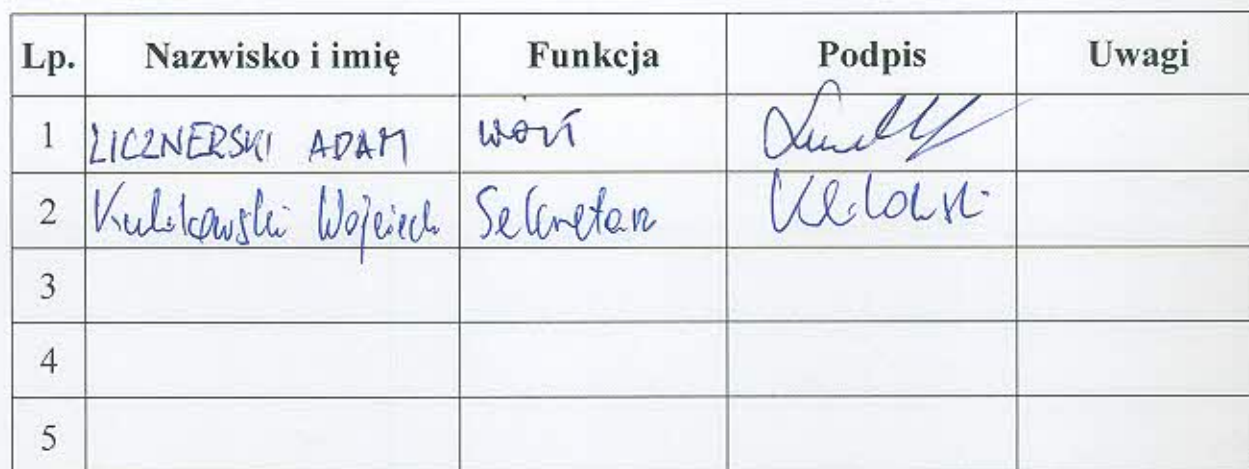 Lp. Nazwisko i imię Funkcja Podpis Uwagi
1 LICZNERSKI ADAM WÓJT
2 Kulikowski Wojciech Sekretarz
3
4
5